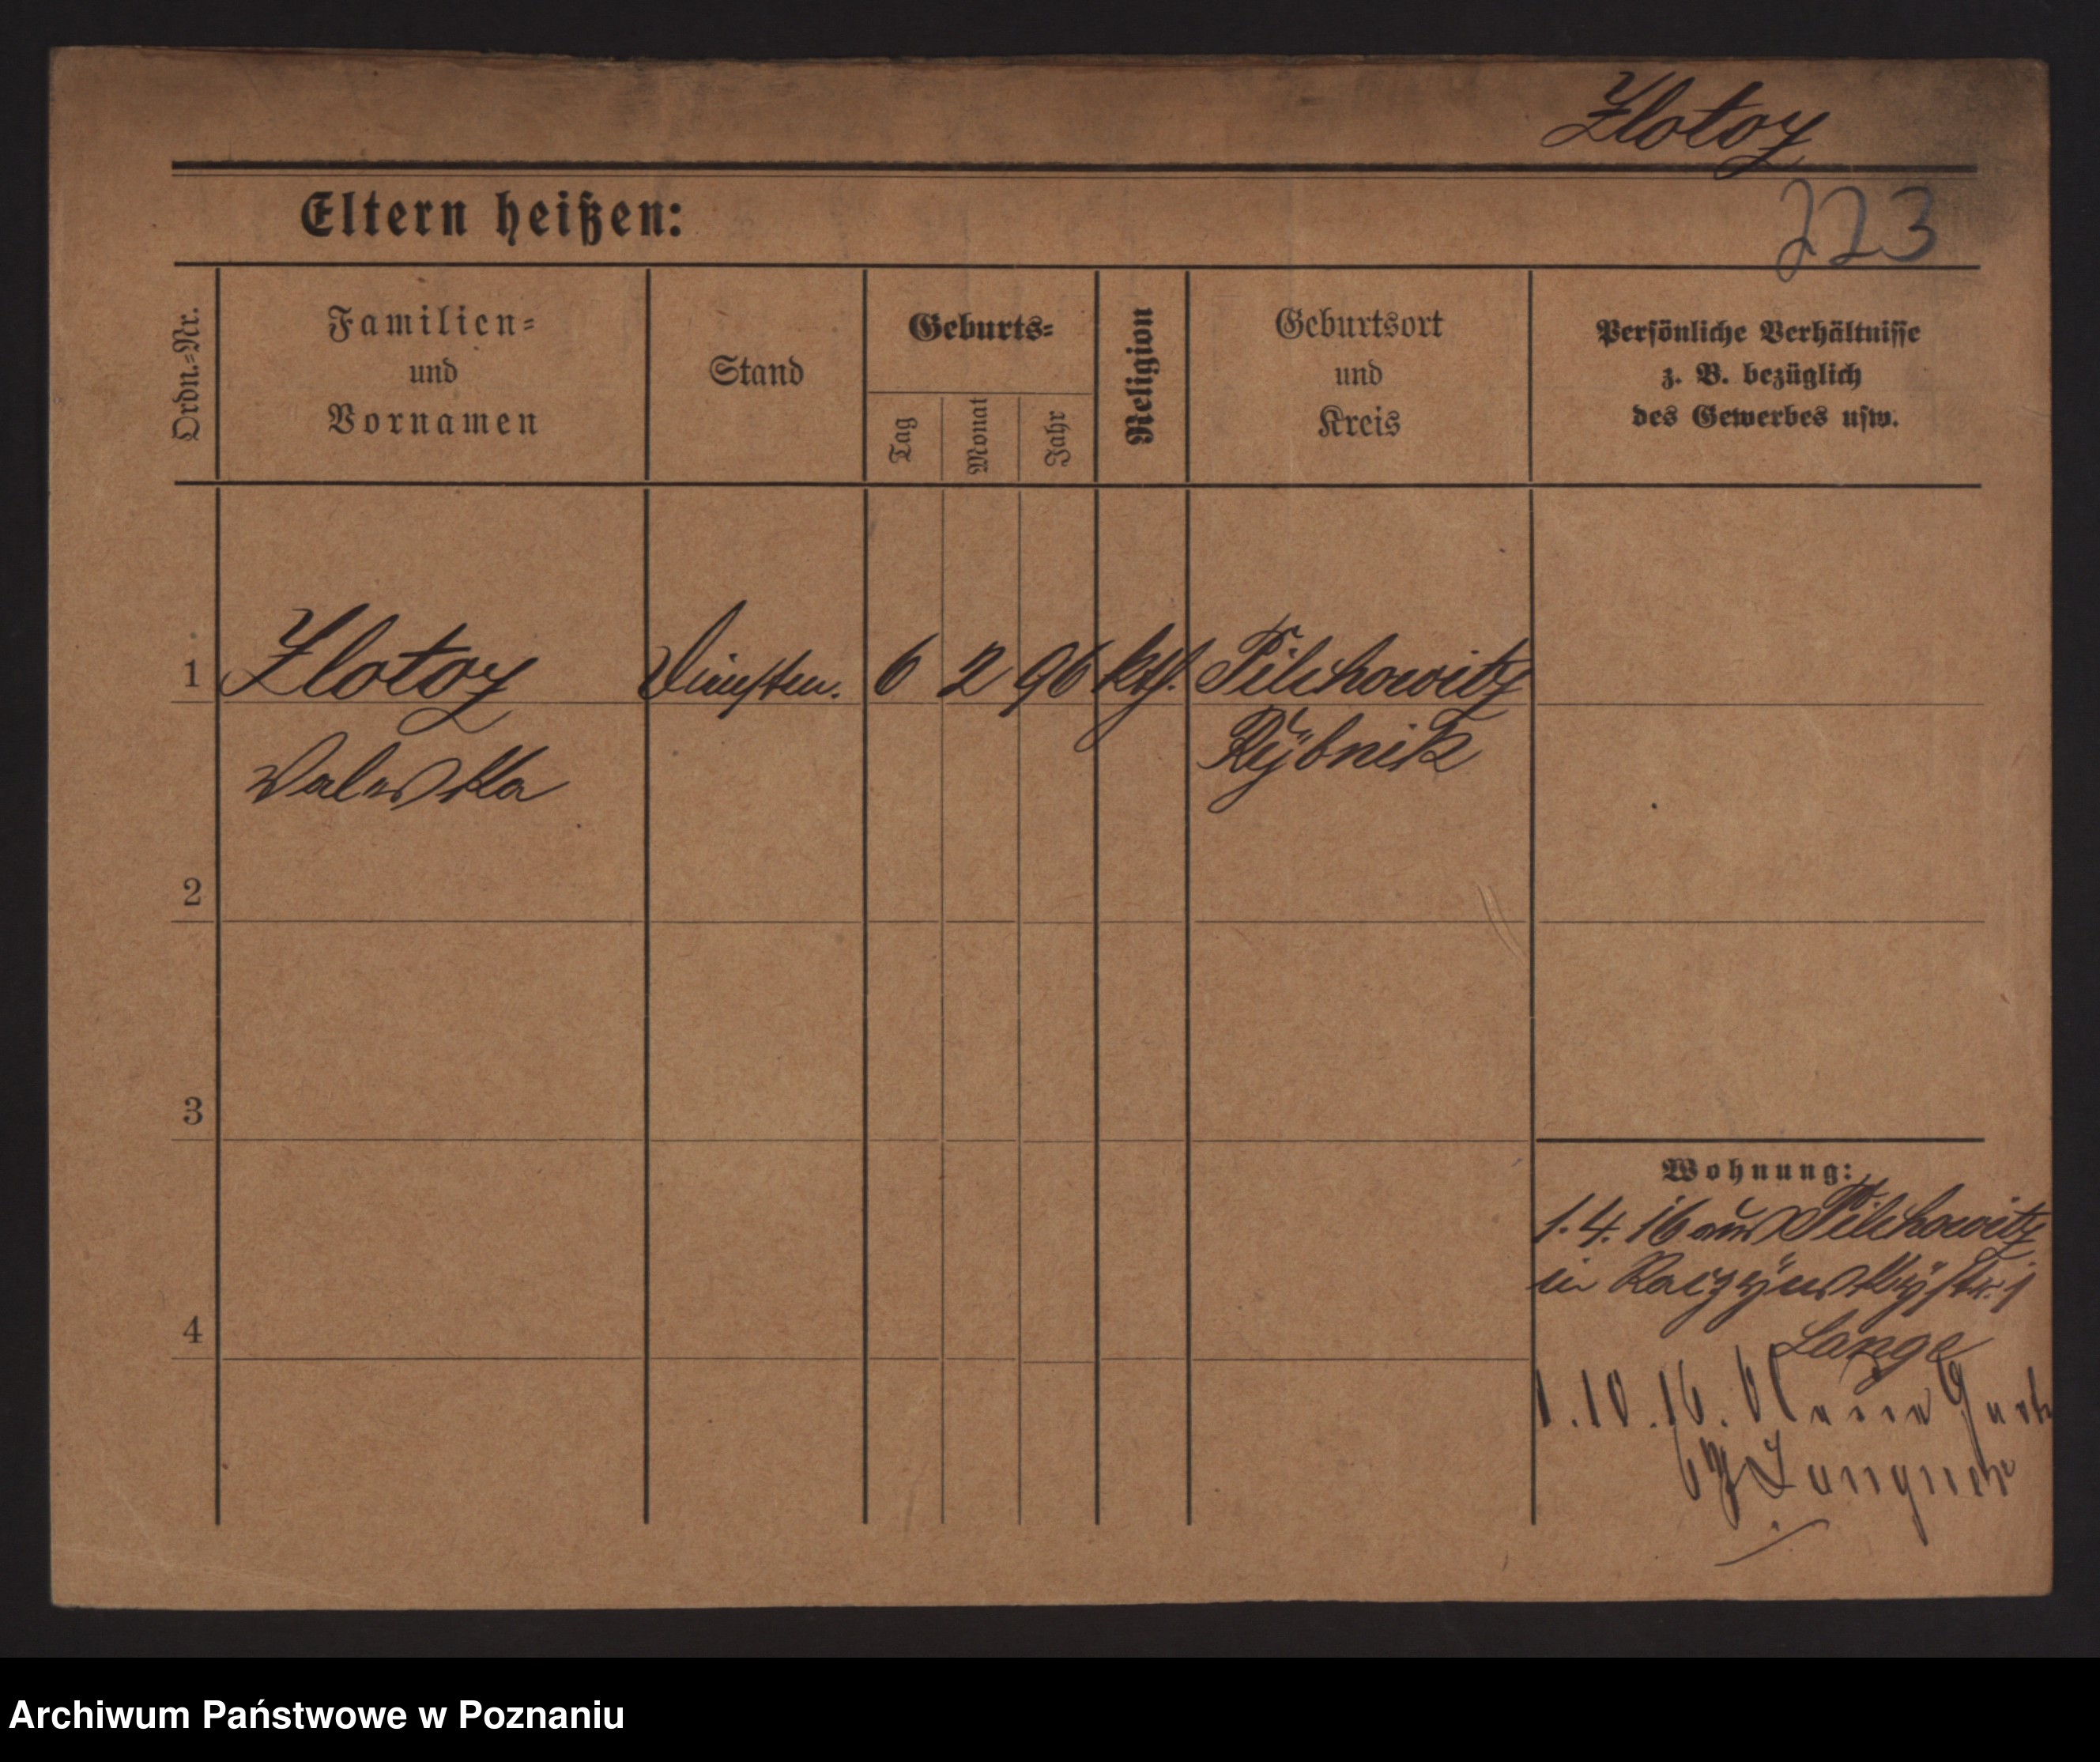 Zlotoz
223
Eltern heißen:
Ordn.=Nr.
Familien=
und
Vornamen
Stand
Geburts=
Tag
Monat
Jahr
Religion
Geburtsort
und
Kreis
Persönliche Verhältnisse
z. B. bezüglich
des Gewerbes usw.
1 Zlotoz 6 2 96 kth. Pilchowitz
Rybnik
Valeska
2
3
Wohnung:
1.4.16 aus Pilchowitz
in
4
Lange
1.10.16.
Langner
Archiwum Państwowe w Poznaniu